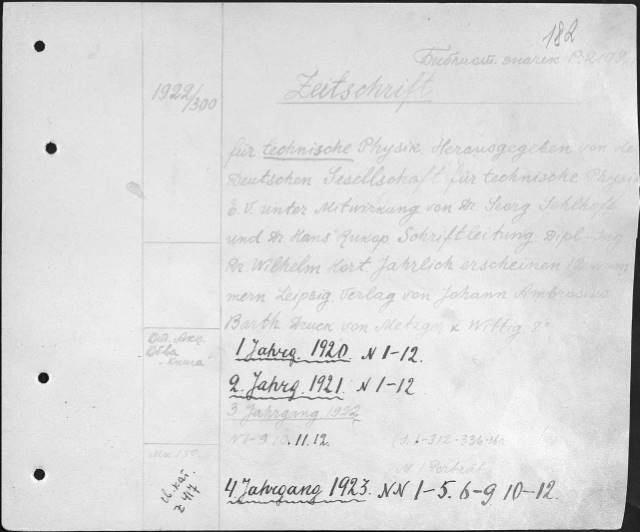 182
Библиот. значек P-2109
Zeitschrift
1922/300
für technische Physik Herausgegeben von der
Deutschen Gesellschaft für technische Physik
E. V. unter Mitwirkung von Dr Georg Gehlhoff
und Dr Hans Rukop Schriftleitung Dipl-Ing
Dr. Wilhelm Hort. Jahrlich erscheinen
mern Leipzig. Verlag von Johann Ambrosius
Barth Druck von Metzger & Wittig 8°
Общ. Акц.
Общва
Книга
1 Jahrg. 1920. N 1-12.
2. Jahrg. 1921. N 1-12
3 Jahrgang 1922
N 1-9 10. 11. 12.
M. 1 Porträt
4 Jahrgang 1923. NN 1-5. 6-9 10-12.